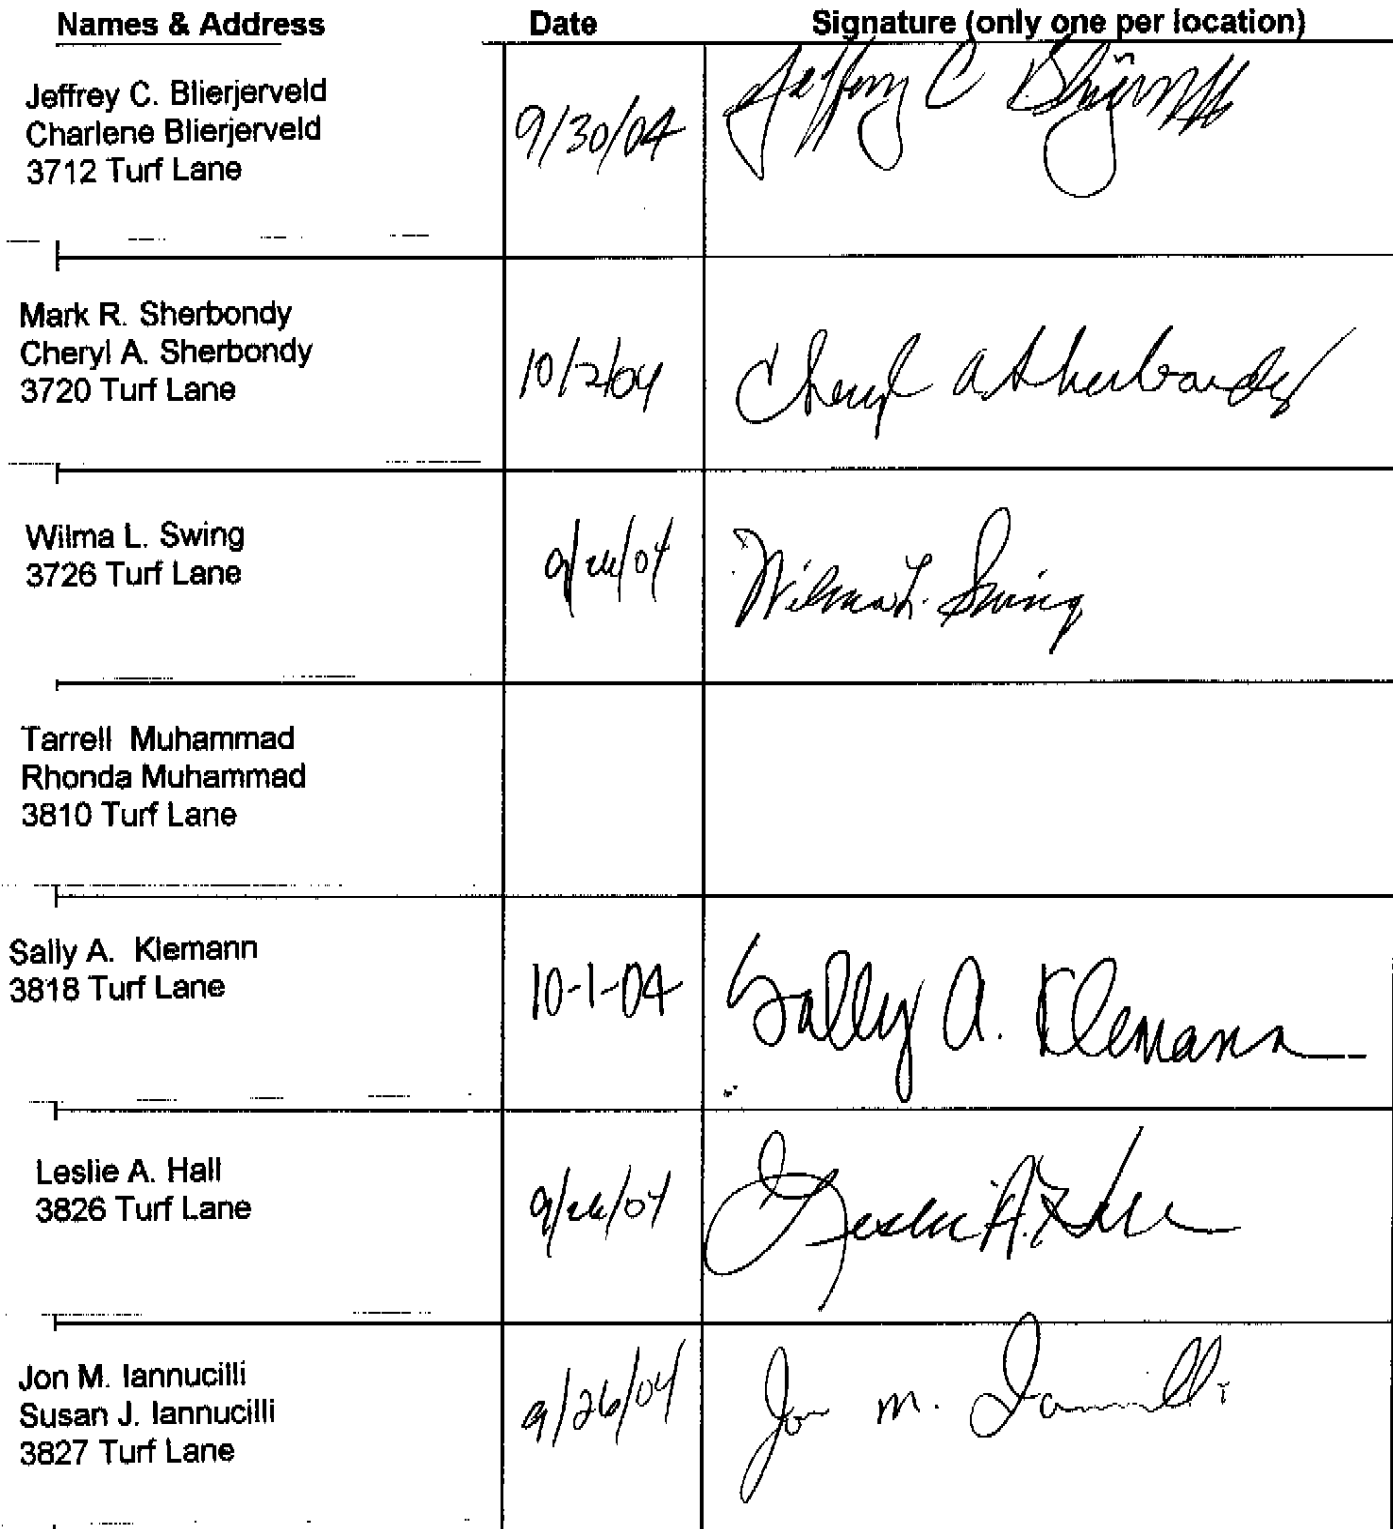 Names & Address Date Signature (only one per location)
Jeffrey C. Blierjerveld
Charlene Blierjerveld
3712 Turf Lane
9/30/04 Jeffrey C
Mark R. Sherbondy
Cheryl A. Sherbondy
3720 Turf Lane
10/2/04 Cheryl A Sherbondy
Wilma L. Swing
3726 Turf Lane
9/26/04 Wilma L. Swing
Tarrell Muhammad
Rhonda Muhammad
3810 Turf Lane
Sally A. Klemann
3818 Turf Lane
10-1-04 Sally A. Klemann
Leslie A. Hall
3826 Turf Lane
9/26/04 Leslie A. Hall
Jon M. Iannucilli
Susan J. Iannucilli
3827 Turf Lane
9/26/04 Jon M.